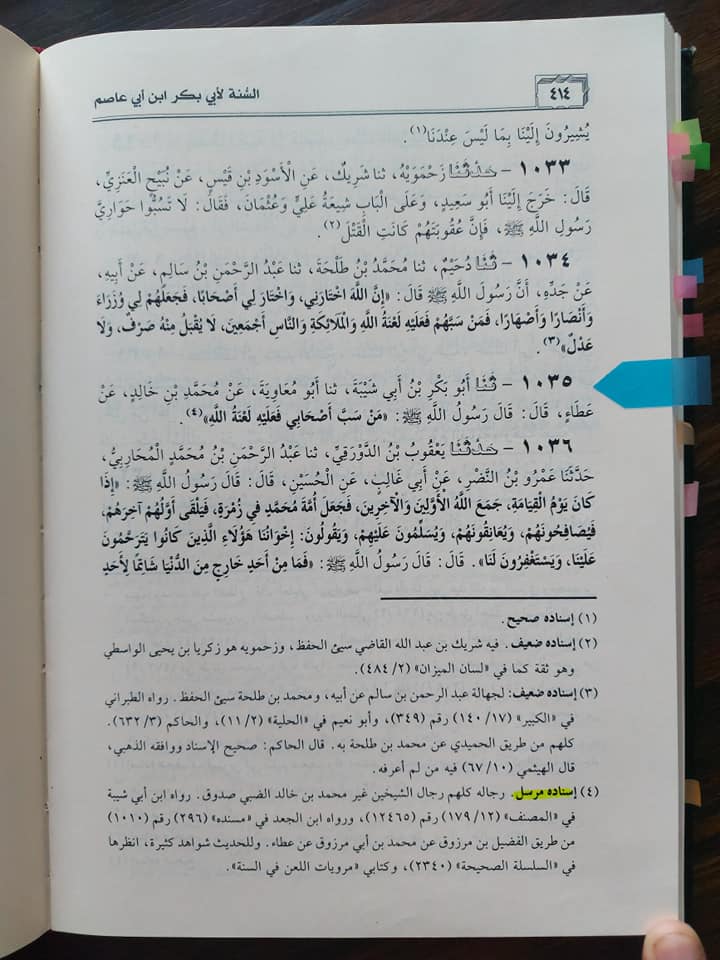 السُّنة لأبي بكر ابن أبي عاصم
٤١٤
يُشِيرُونَ إِلَيْنَا بِمَا لَيْسَ عِنْدَنَا(١).
١٠٣٣ - حَدَّثَنَا زَحْمَوَيْهُ، ثنا شَرِيكٌ، عَنِ الْأَسْوَدِ بْنِ قَيْسٍ، عَنْ نُبَيْحٍ الْعَنَزِيِّ،
قَالَ: خَرَجَ إِلَيْنَا أَبُو سَعِيدٍ، وَعَلَى الْبَابِ شِيعَةُ عَلِيٍّ وَعُثْمَانَ، فَقَالَ: لَا تَسُبُّوا حَوَارِيَّ
رَسُولِ اللَّهِ ﷺ، فَإِنَّ عُقُوبَتَهُمْ كَانَتِ الْقَتْلَ(٢).
١٠٣٤ - ثَنَا دُحَيْمٌ، ثنا مُحَمَّدُ بْنُ طَلْحَةَ، ثنا عَبْدُ الرَّحْمَنِ بْنُ سَالِمٍ، عَنْ أَبِيهِ،
عَنْ جَدِّهِ، أَنَّ رَسُولَ اللَّهِ ﷺ قَالَ: «إِنَّ اللَّهَ اخْتَارَنِي، وَاخْتَارَ لِي أَصْحَابًا، فَجَعَلَهُمْ لِي وُزَرَاءَ
وَأَنْصَارًا وَأَصْهَارًا، فَمَنْ سَبَّهُمْ فَعَلَيْهِ لَعْنَةُ اللَّهِ وَالْمَلَائِكَةِ وَالنَّاسِ أَجْمَعِينَ، لَا يُقْبَلُ مِنْهُ صَرْفٌ، وَلَا
عَدْلٌ»(٣).
١٠٣٥ - ثَنَا أَبُو بَكْرِ بْنُ أَبِي شَيْبَةَ، ثنا أَبُو مُعَاوِيَةَ، عَنْ مُحَمَّدِ بْنِ خَالِدٍ، عَنْ
عَطَاءٍ، قَالَ: قَالَ رَسُولُ اللَّهِ ﷺ: «مَنْ سَبَّ أَصْحَابِي فَعَلَيْهِ لَعْنَةُ اللَّهِ»(٤).
١٠٣٦ - حَدَّثَنَا يَعْقُوبُ بْنُ الدَّوْرَقِيِّ، ثنا عَبْدُ الرَّحْمَنِ بْنُ مُحَمَّدٍ الْمُحَارِبِيُّ،
حَدَّثَنَا عَمْرُو بْنُ النَّضْرِ، عَنْ أَبِي غَالِبٍ، عَنِ الْحُسَيْنِ، قَالَ: قَالَ رَسُولُ اللَّهِ ﷺ: «إِذَا
كَانَ يَوْمُ الْقِيَامَةِ، جَمَعَ اللَّهُ الْأَوَّلِينَ وَالْآخِرِينَ، فَجَعَلَ أُمَّةَ مُحَمَّدٍ فِي زُمْرَةٍ، فَيَلْقَى أَوَّلُهُمْ آخِرَهُمْ،
فَيُصَافِحُونَهُمْ، وَيُعَانِقُونَهُمْ، وَيُسَلِّمُونَ عَلَيْهِمْ، وَيَقُولُونَ: إِخْوَانُنَا هَؤُلَاءِ الَّذِينَ كَانُوا يَتَرَحَّمُونَ
عَلَيْنَا، وَيَسْتَغْفِرُونَ لَنَا». قَالَ: قَالَ رَسُولُ اللَّهِ ﷺ: «فَمَا مِنْ أَحَدٍ خَارِجٍ مِنَ الدُّنْيَا شَاتِمًا لِأَحَدٍ
(١) إسناده صحيح.
(٢) إسناده ضعيف. فيه شريك بن عبد الله القاضي سيئ الحفظ، وزحمويه هو زكريا بن يحيى الواسطي
وهو ثقة كما في «لسان الميزان» (٢/ ٤٨٤).
(٣) إسناده ضعيف: لجهالة عبد الرحمن بن سالم عن أبيه، ومحمد بن طلحة سيئ الحفظ. رواه الطبراني
في «الكبير» (١٧/ ١٤٠) رقم (٣٤٩)، وأبو نعيم في «الحلية» (٢/ ١١)، والحاكم (٣/ ٦٣٢).
كلهم من طريق الحميدي عن محمد بن طلحة به. قال الحاكم: صحيح الإسناد ووافقه الذهبي،
قال الهيثمي (١٠/ ٦٧) فيه من لم أعرفه.
(٤) إسناده مرسل. رجاله كلهم رجال الشيخين غير محمد بن خالد الضبي صدوق. رواه ابن أبي شيبة
في «المصنف» (١٢/ ١٧٩) رقم (١٢٤٦٥)، ورواه ابن الجعد في «مسنده» (٢٩٦) رقم (١٠١٠)
من طريق الفضيل بن مرزوق عن محمد بن أبي مرزوق عن عطاء. وللحديث شواهد كثيرة، انظرها
في «السلسلة الصحيحة» (٢٣٤٠)، وكتابي «مرويات اللعن في السنة».